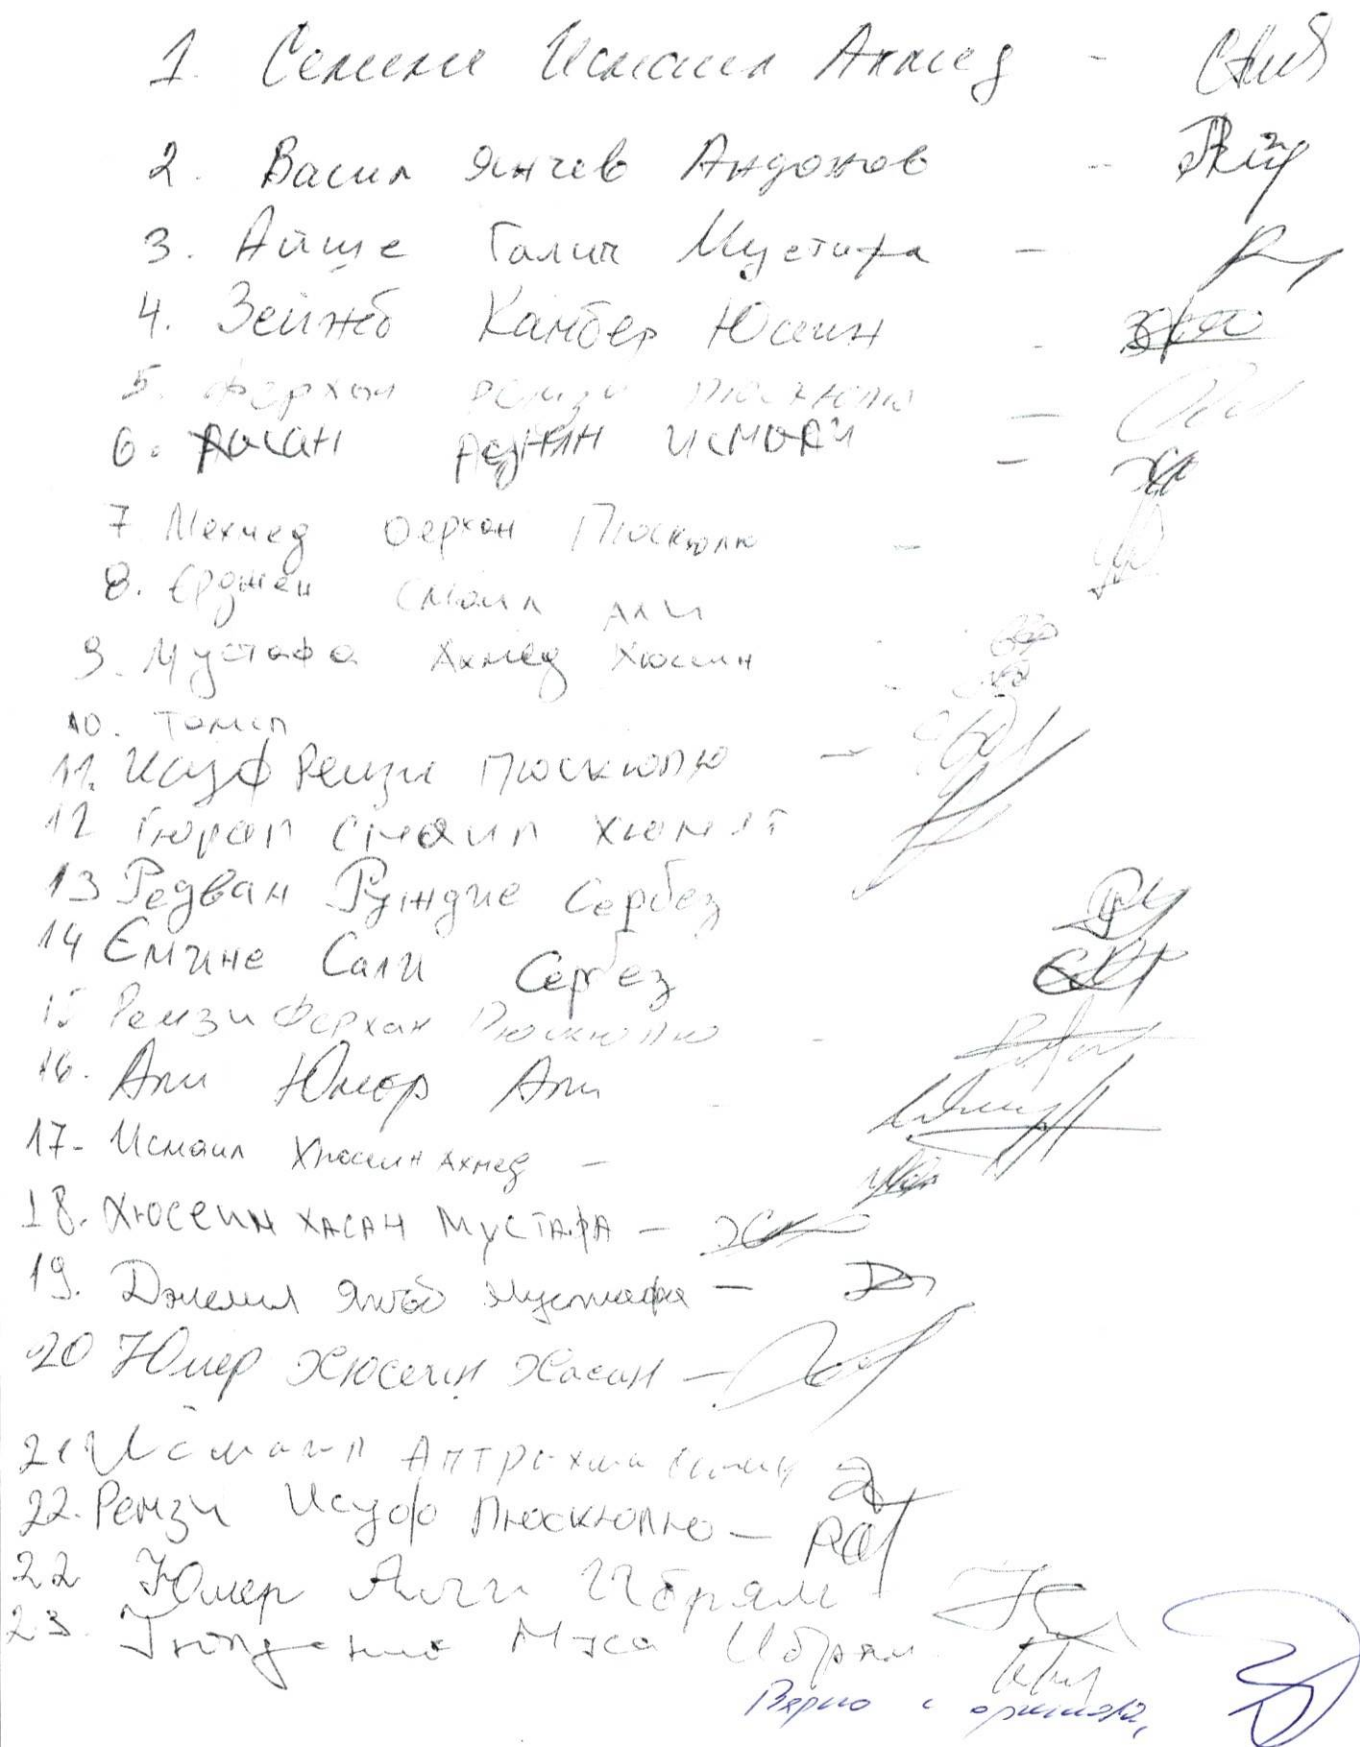 1. Селиме Исмаил Ахмед -
2. Васил Янчев Андонов -
3. Айше Галип Мустафа -
4. Зейнеб Камбер Юсеин -
5. Ферхан Ремзи Пюскюлю -
6. Хасан Аднан Исмаил -
7 Мехмед Ферхан Пюскюлю -
8. Ерджан Смаил Али
9. Мустафа Ахмед Хюсеин -
10.
11. Исуф Ремзи Пюскюлю -
12 Гюрал Смаил
13 Редван Сербез
14 Емине Сали Сербез
15 Ремзи Ферхан Пюскюлю -
16. Али Юмер Али -
17- Исмаил Хюсеин Ахмед -
18. Хюсеин Хасан Мустафа -
19. Джелил Якуб Мустафа -
20 Юмер Хюсеин Хасан -
21 Исмаил
22. Ремзи Исуф Пюскюлю -
22 Юмер Али Ибрям
23. Муса Ибрям
Вярно с оригинала,